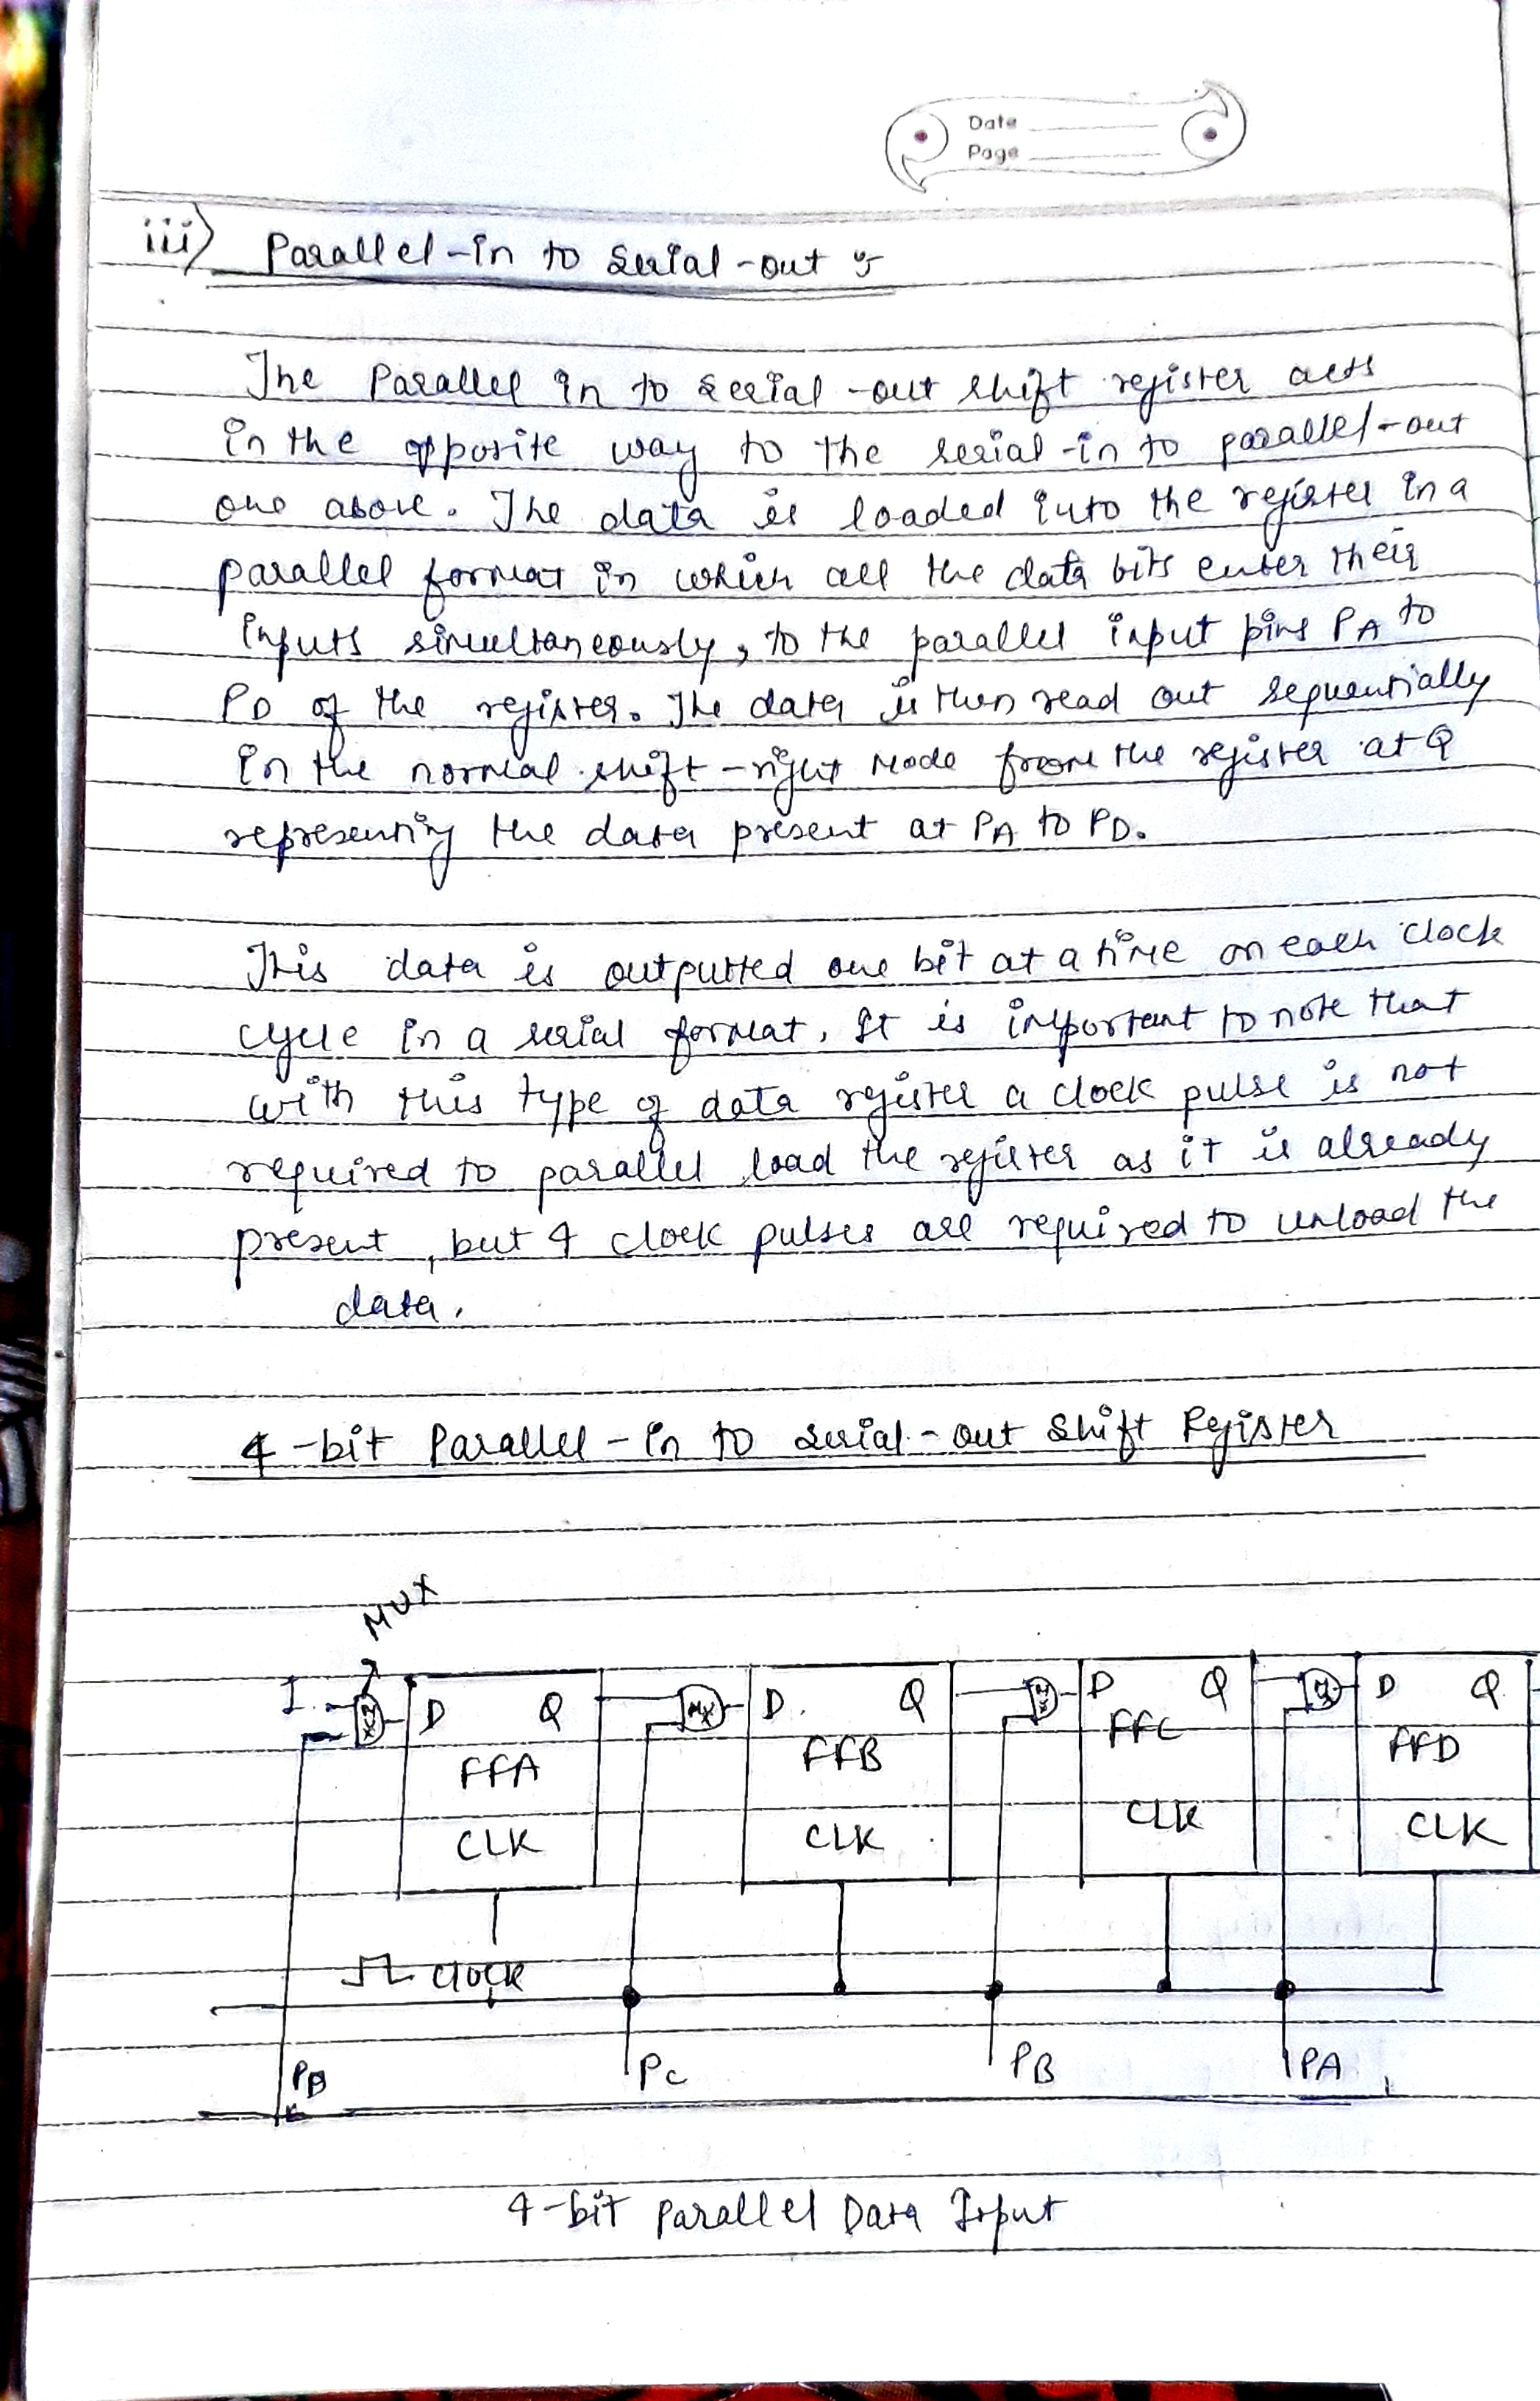 Date
Page
iii) Parallel-in to Serial-out :-
The Parallel in to serial-out shift register acts
in the opposite way to the serial-in to parallel-out
one above. The data is loaded into the register in a
parallel format in which all the data bits enter their
inputs simultaneously, to the parallel input pins PA to
PD of the register. The data is then read out sequentially
in the normal shift-right mode from the register at Q
representing the data present at PA to PD.
This data is outputted one bit at a time on each clock
cycle in a serial format. It is important to note that
with this type of data register a clock pulse is not
required to parallel load the register as it is already
present, but 4 clock pulses are required to unload the
data.
4-bit Parallel-in to Serial-out Shift Register
MUX
D Q D Q D Q D Q
FFA FFB FFC FFD
CLK CLK CLK CLK
clock
PC PB PA
4-bit parallel Data Input